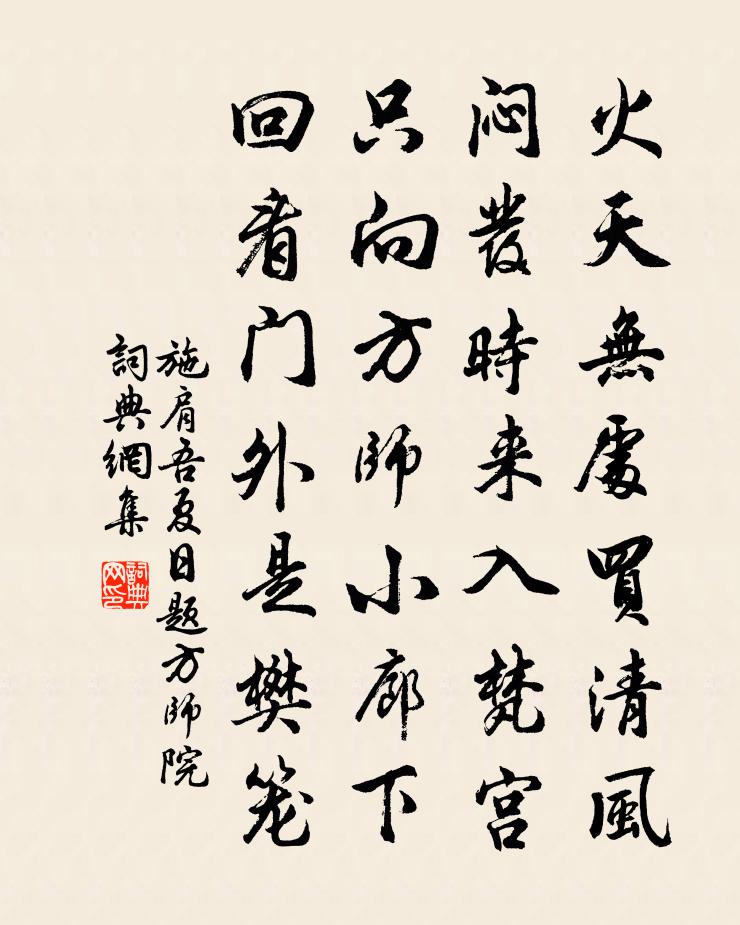 火天無處買清風
闷發時来入梵宫
只向方師小廊下
回看门外是樊笼
施肩吾夏日题方師院
詞典網集
詞典网印